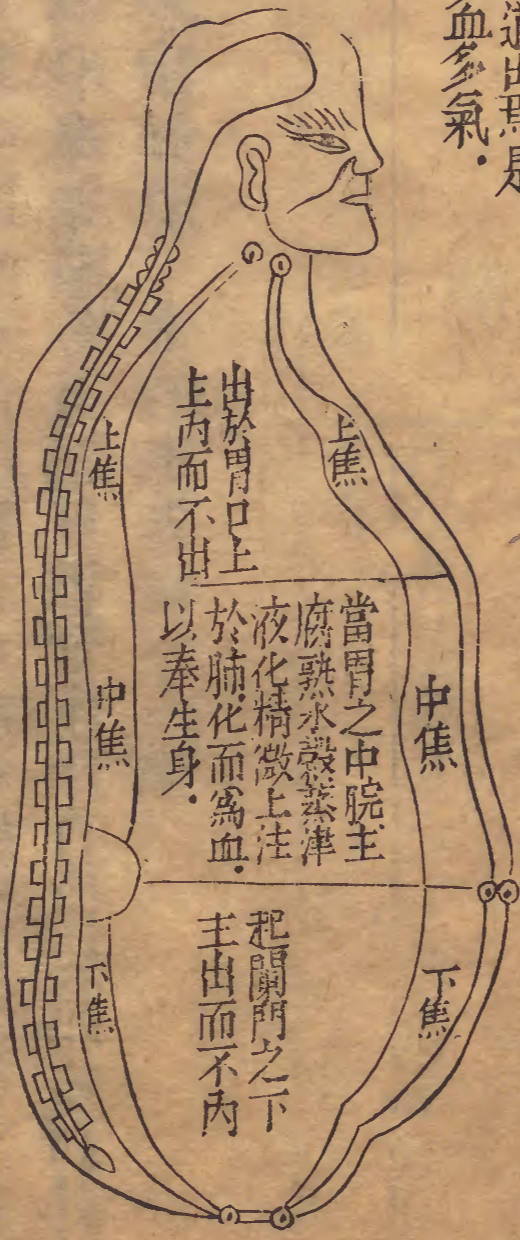 道出焉是
血多氣．
上焦
出於胃口上
主內而不出
上焦
中焦
當胃之中脘主
腐熟水穀蒸津
液化精微上注
於肺化而爲血．
以奉生身．
中焦
下焦
起闌門之下
主出而不內
下焦